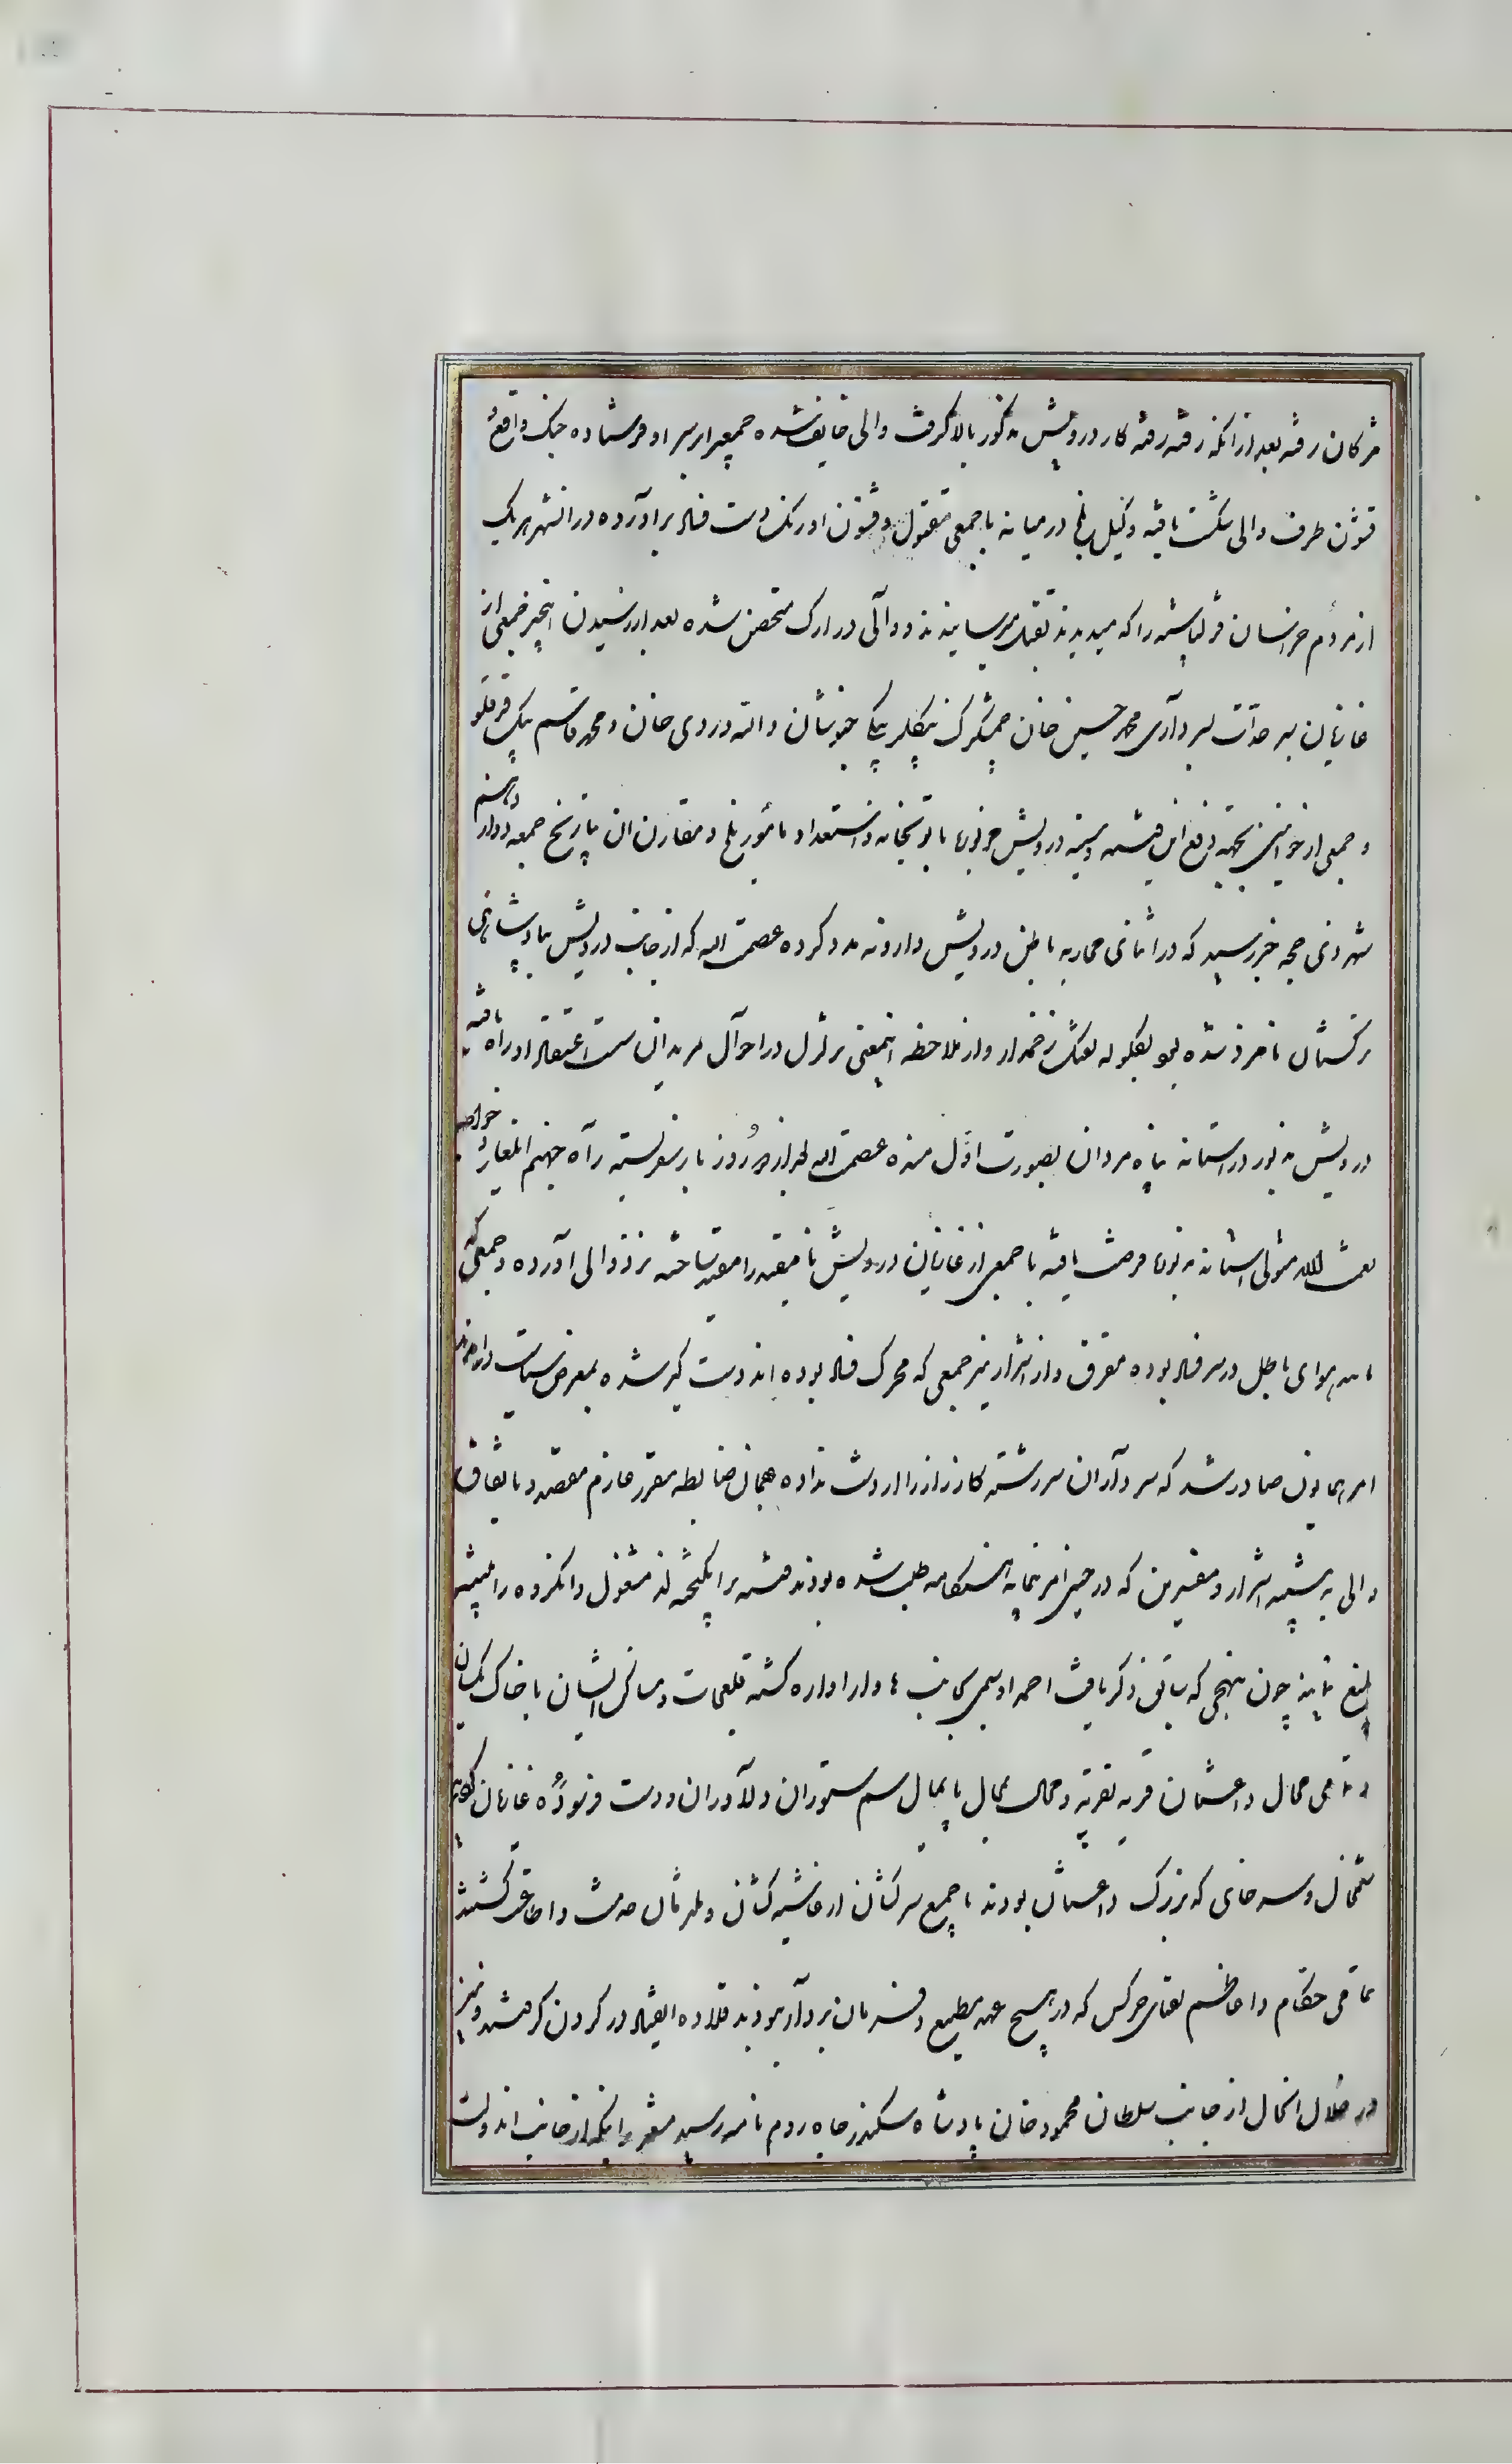 مژکان رفته بعد از انکه رفته رفته کار درویش مذکور بالا کرفت والی خایف شده جمعیرا بر سر او فرستاده جنک واقع و
قشون طرف والی شکست یافته وکیل بلخ در میانه با جمعی مقتول و قشون اوزبک دست فساد بر آورده در انشهر هر یک
از مردم خراسان و قزلباشیه را که میدیدند بقتل میرسانیدند و والی در ارک متحصن شده بعد از رسیدن اینخبر جمعی از
غازیان سرحدات بسرداری محمد حسین خان چمشکزک بیکلربیکی خبوشان و الله ویردی خان و محمد قاسم بیک قرقلو
و جمعی از خوانین بجهته دفع این فتنه و تنبیه درویش مزبور با توپخانه و استعداد مأمور بلخ و مقارن ان بتاریخ جمعه دوازدهم
شهر ذی حجه خبر رسید که در اثنای محاربه باطن درویش وارونه مدد کرده عصمت الله که از جانب درویش بپادشاهی
ترکستان نامزد شده بود بکلوله تفنک زخمدار و از ملاحظه اینمعنی تزلزل در احوال مریدان سست اعتقاد او راه یافته
درویش مزبور در استانه شاه مردان بصورت اول منزه عصمت الله بعد از دو روز بار سفر بسته راه جهنم المعاد خواجه
نعمت الله متولی استانه مزبوره فرصت یافته با جمعی از غازیان درویش نامقید را مقید ساخته نزد والی اورده و جمعی که
با هوای باطل در سر فساد بوده متفرق و از اشرار نیز جمعی که محرک فساد بوده اند دستکیر شده بمعرض سیاست در امدند
امر همایون صادر شد که سرداران سررشته کارزار را از دست نداده بهمان ضابطه مقرر عازم مقصد و باتفاق
والی به تنبیه اشرار و مفسدین که در حین امر بنیابه هنکامه طلب شده بودند فتنه بر انکیخته اند مشغول و انکروه را تنبیه
بلیغ نمایند چون بنهجی که سابق ذکر یافت احمد اوسمی بجانب اوار اواره کشته قلعجات و مساکن ایشان با خاک یکسان
و تمامی محال داغستان قریه بقریه و محال بمحال پایمال سم ستوران دلاوران و دست فرسوده غازیان کردید
شمخال و سرخای که بزرک داغستان بودند با جمیع سرکشان از غاشیه کشان و ملازمان خدمت و اطاعت کشتند
تمامی حکام و اعاظم بقای چرکس که در هیچ عهد مطیع و فرمان بردار نبودند قلاده انقیاد در کردن کرفتند و نیز
در خلال اینحال از جانب سلطان محمود خان پادشاه سکندر جاه روم نامه رسید مشعر بر اینکه از جانب اندولت